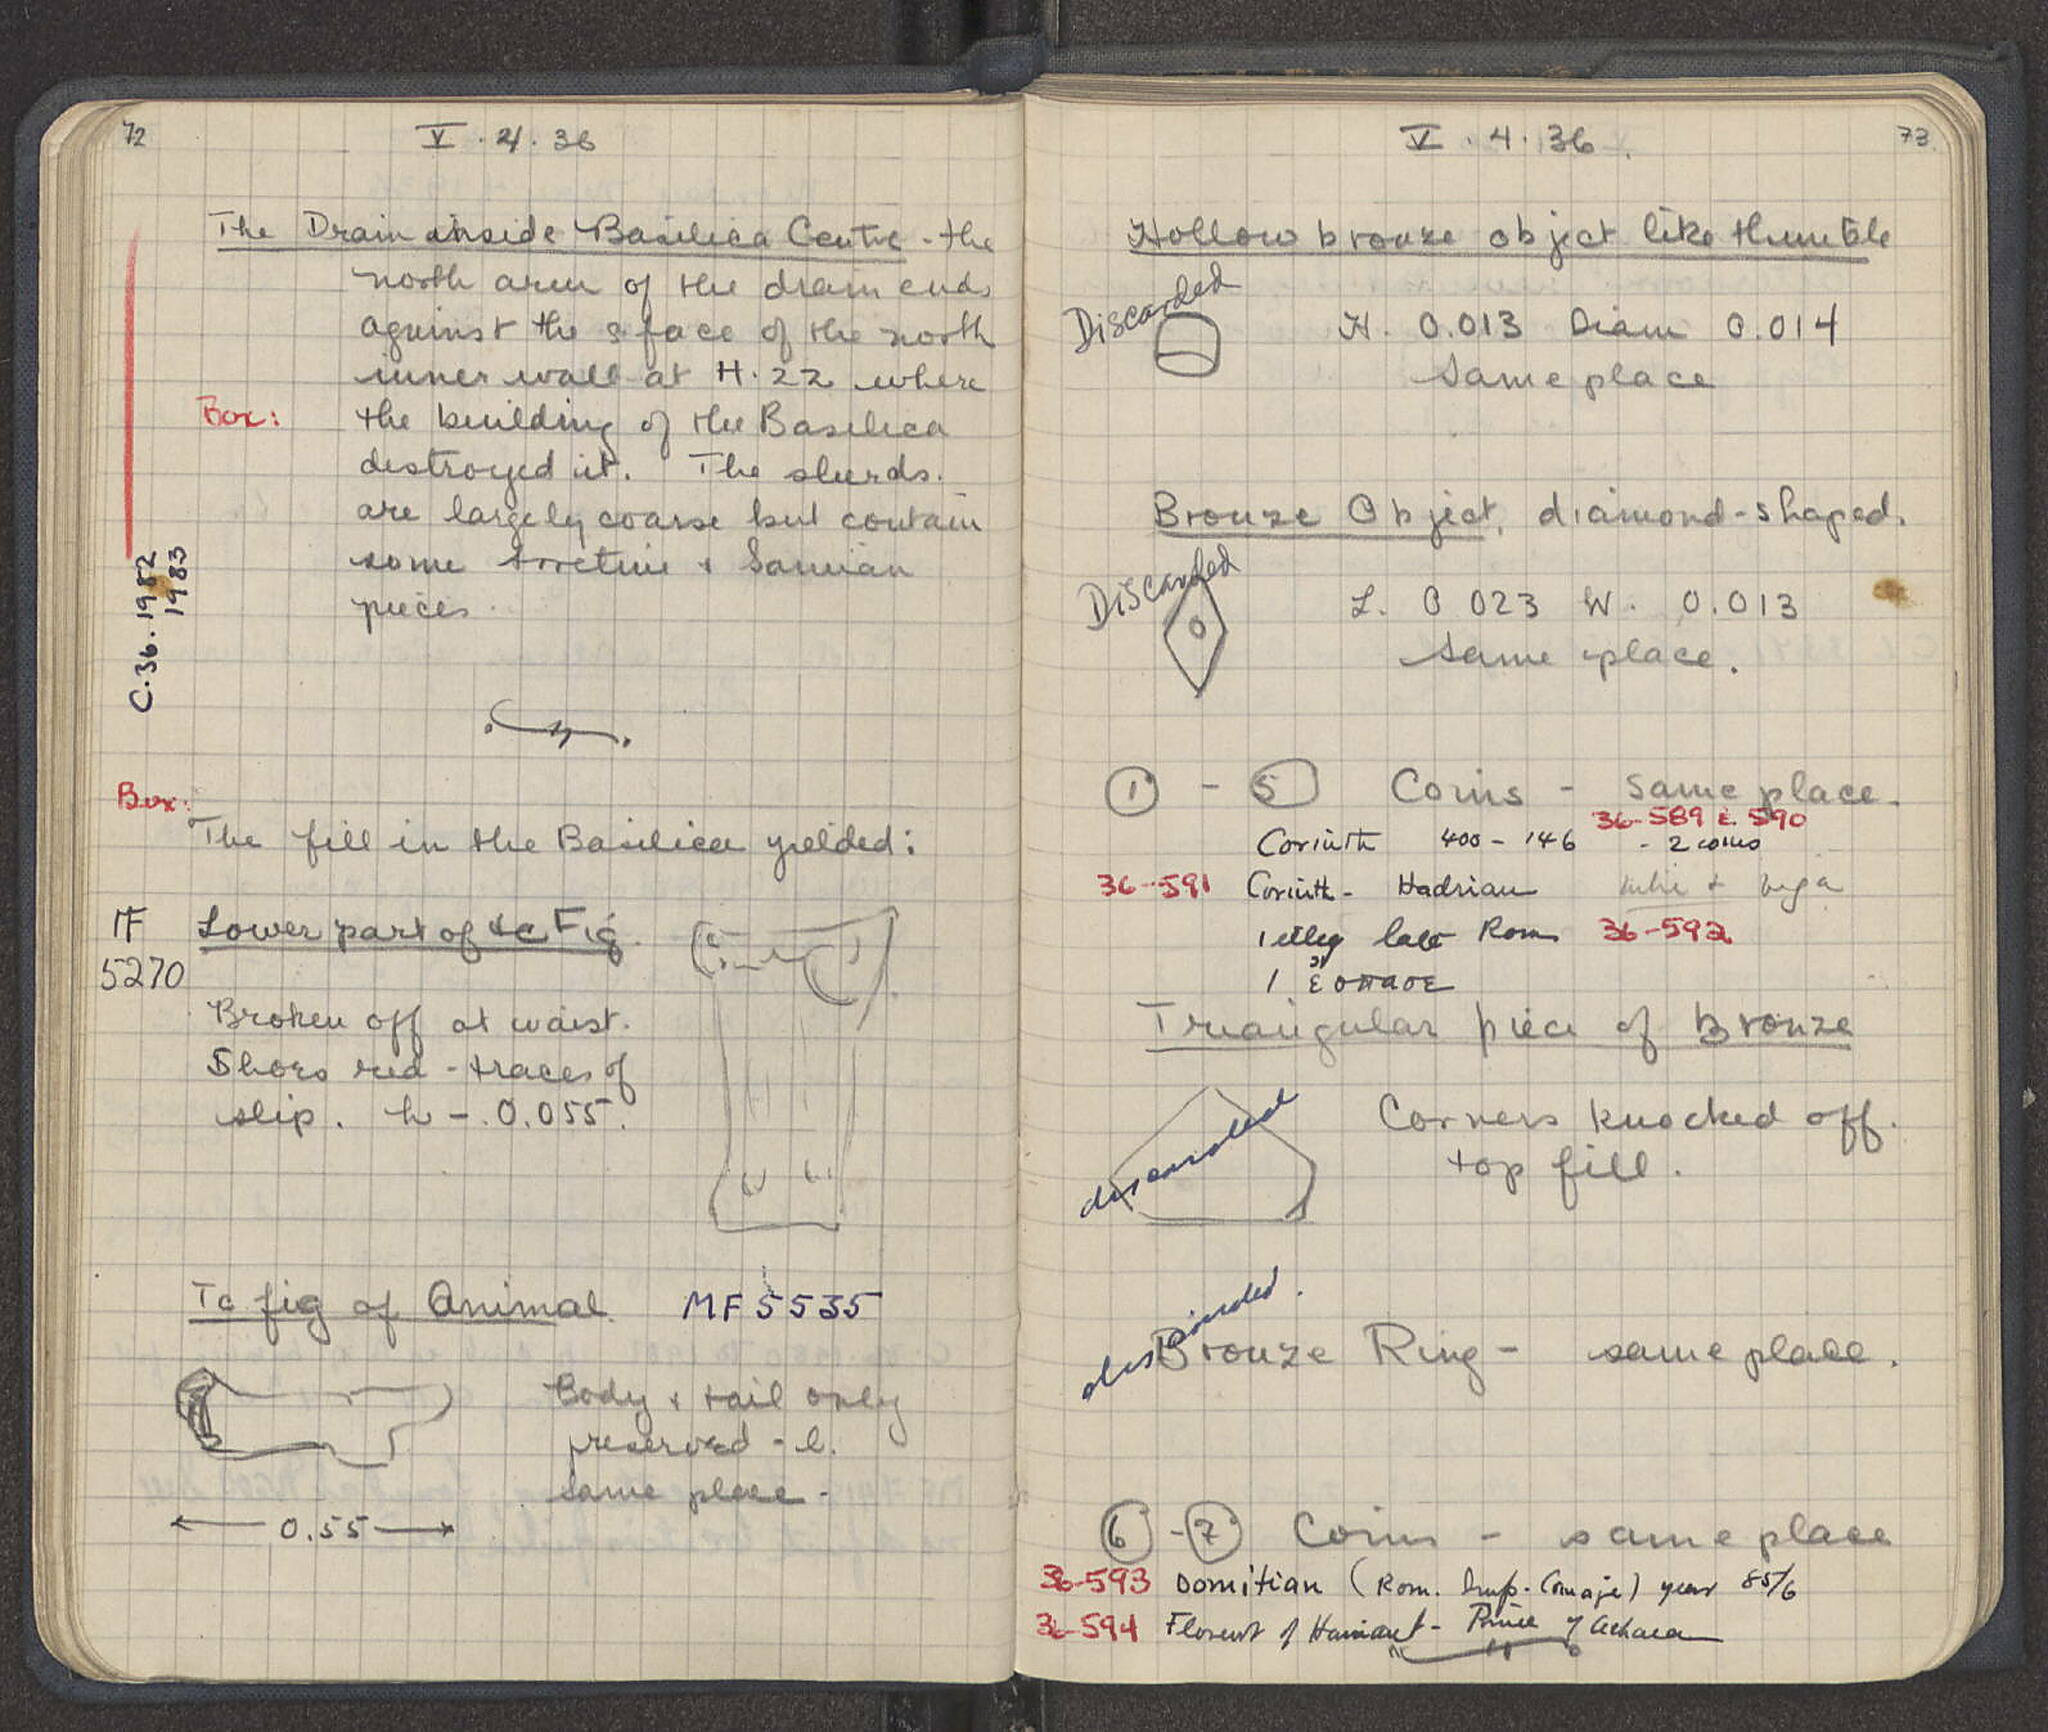 72
V . 4 . 36
The Drain inside Basilica Centre - the
north arm of the drain ends
against the s face of the north
inner wall at H. 22 where
Box: the building of the Basilica
destroyed it. The sherds.
are largely coarse but contain
some Arretine + Samian
pieces.
C. 36. 1982
1983
Box:
The fill in the Basilica yielded:
MF
5270
Lower part of tc Fig.
Broken off at waist.
Shoes red - traces of
slip. h - 0.055.
Tc fig of Animal MF 5535
Body + tail only
preserved - l.
Same place -
0.55
V . 4 . 36.
73.
Hollow bronze object like thimble
Discarded
H. 0.013 Diam 0.014
Same place
Bronze Object, diamond-shaped.
Discarded
L. 0 023 W. 0.013
Same place.
1 - 5 Coins - same place.
36-589 & 590
Corinth 400 - 146 - 2 coins
36-591 Corinth - Hadrian
1 illeg late Rom 36-592
1
Triangular piece of Bronze
discarded
Corners knocked off.
top fill.
discarded.
Bronze Ring - same place.
6 - 7 Coins - same place
36-593 Domitian (Rom. Imp. Coinage) year 85/6
36-594 Florent of Hainaut - Prince of Achaea